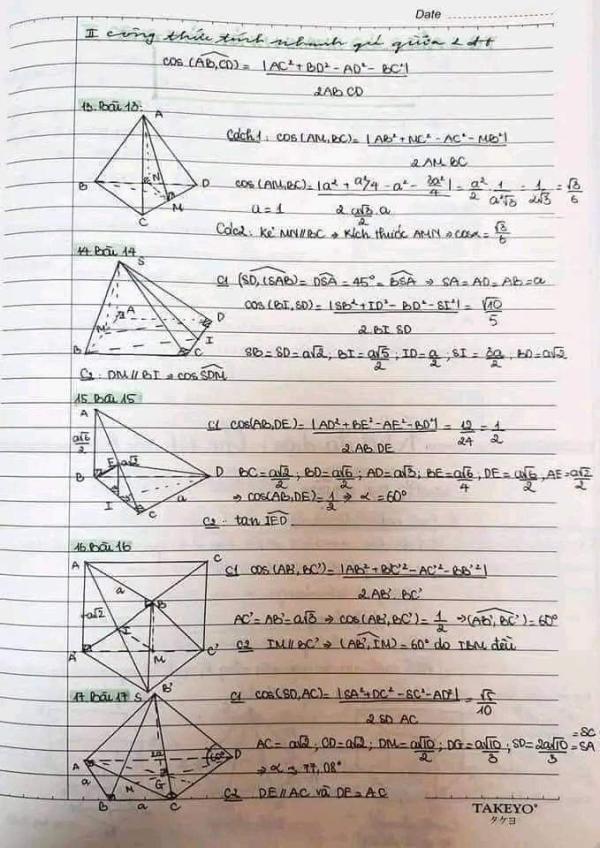 Date
II công thức tính nhanh góc giữa 2 đt
cos(AB,CD) = |AC² + BD² - AD² - BC²| / 2AB CD
13. Bài 13
A
B
N
D
M
C
Cách1: cos(AM,BC) = |AB² + MC² - AC² - MB²| / 2 AM BC
cos(AM,BC) = |a² + a²/4 - a² - 3a²/4| / 2 a√3/2 . a = a²/2 . 1/a²√3 = 1/2√3 = √3/6
a = 1
Cách2: Kẻ MN//BC → kích thước AMN → cosα = √3/6
14. Bài 14
S
A
M
D
I
B
C
C1 (SD,(SAB) = DSA = 45° = BSA ⇒ SA = AD = AB = a
cos(BI,SD) = |SB² + ID² - BD² - SI²| / 2.BI SD = √10/5
SB = SD = a√2, BI = a√5/2; ID = a/2, SI = 3a/2, BD = a√2
C2: DM // BI ⇒ cos SDM
15. Bài 15
A
a√6/2
E
a√2
B
D
I
a
C
C1 cos(AB,DE) = |AD² + BE² - AE² - BD²| / 2.AB DE = 12/24 = 1/2
BC = a√2/2, BD = a√6/2; AD = a√3; BE = a√6/4, DE = a√6/2, AE = a√2/2
⇒ cos(AB,DE) = 1/2 ⇒ α = 60°
C2: tan IED
16. Bài 16
A
C
a
B
a√2
I
A'
M
C'
B'
C1 cos(AB', BC') = |AB² + B'C'² - AC'² - BB'²| / 2AB'. BC'
AC' = AB' = a√3 ⇒ cos(AB', BC') = 1/2 ⇒ (AB', BC') = 60°
C2 IM // BC' ⇒ (AB', IM) = 60° do IBM đều
17. Bài 17
S
A
60°
D
a
M
G
B
a
C
C1 cos(SD,AC) = |SA² + DC² - SC² - AD²| / 2 SD AC = √5/10
AC = a√2; CD = a√2; DM = a√10/2; DG = a√10/3; SD = 2a√10/3 = SC = SA
⇒ α ≈ 77,08°
C2 DE // AC và DE = AC
TAKEYO®
タケヨ